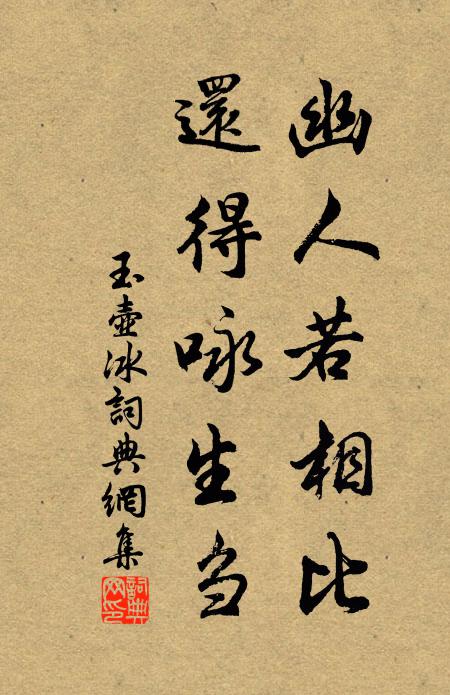 幽人若相比
還得咏生刍
玉壺冰詞典網集
詞典网印